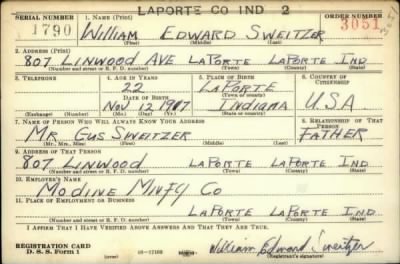 LAPORTE CO IND 2
SERIAL NUMBER 1. NAME (Print) ORDER NUMBER
1790 William Edward Sweitzer 3051
(First) (Middle) (Last)
2. ADDRESS (Print)
807 Linwood Ave LaPorte LaPorte Ind
(Number and street or R. F. D. number) (Town) (County) (State)
3. TELEPHONE 4. AGE IN YEARS 5. PLACE OF BIRTH 6. COUNTRY OF CITIZENSHIP
22 LaPorte
DATE OF BIRTH (Town or county)
Nov 12 Indiana U.S.A.
(Exchange) (Number) (Mo.) (Day) (Yr.) (State or country)
7. NAME OF PERSON WHO WILL ALWAYS KNOW YOUR ADDRESS 8. RELATIONSHIP OF THAT PERSON
Mr Gus Sweitzer Father
(Mr., Mrs., Miss) (First) (Middle) (Last)
9. ADDRESS OF THAT PERSON
807 Linwood LaPorte LaPorte Ind
(Number and street or R. F. D. number) (Town) (County) (State)
10. EMPLOYER'S NAME
Modine Mnfg Co
11. PLACE OF EMPLOYMENT OR BUSINESS
LaPorte LaPorte Ind
(Number and street or R. F. D. number) (Town) (County) (State)
I AFFIRM THAT I HAVE VERIFIED ABOVE ANSWERS AND THAT THEY ARE TRUE.
REGISTRATION CARD
D. S. S. Form 1 William Edward Sweitzer
(Registrant's signature)